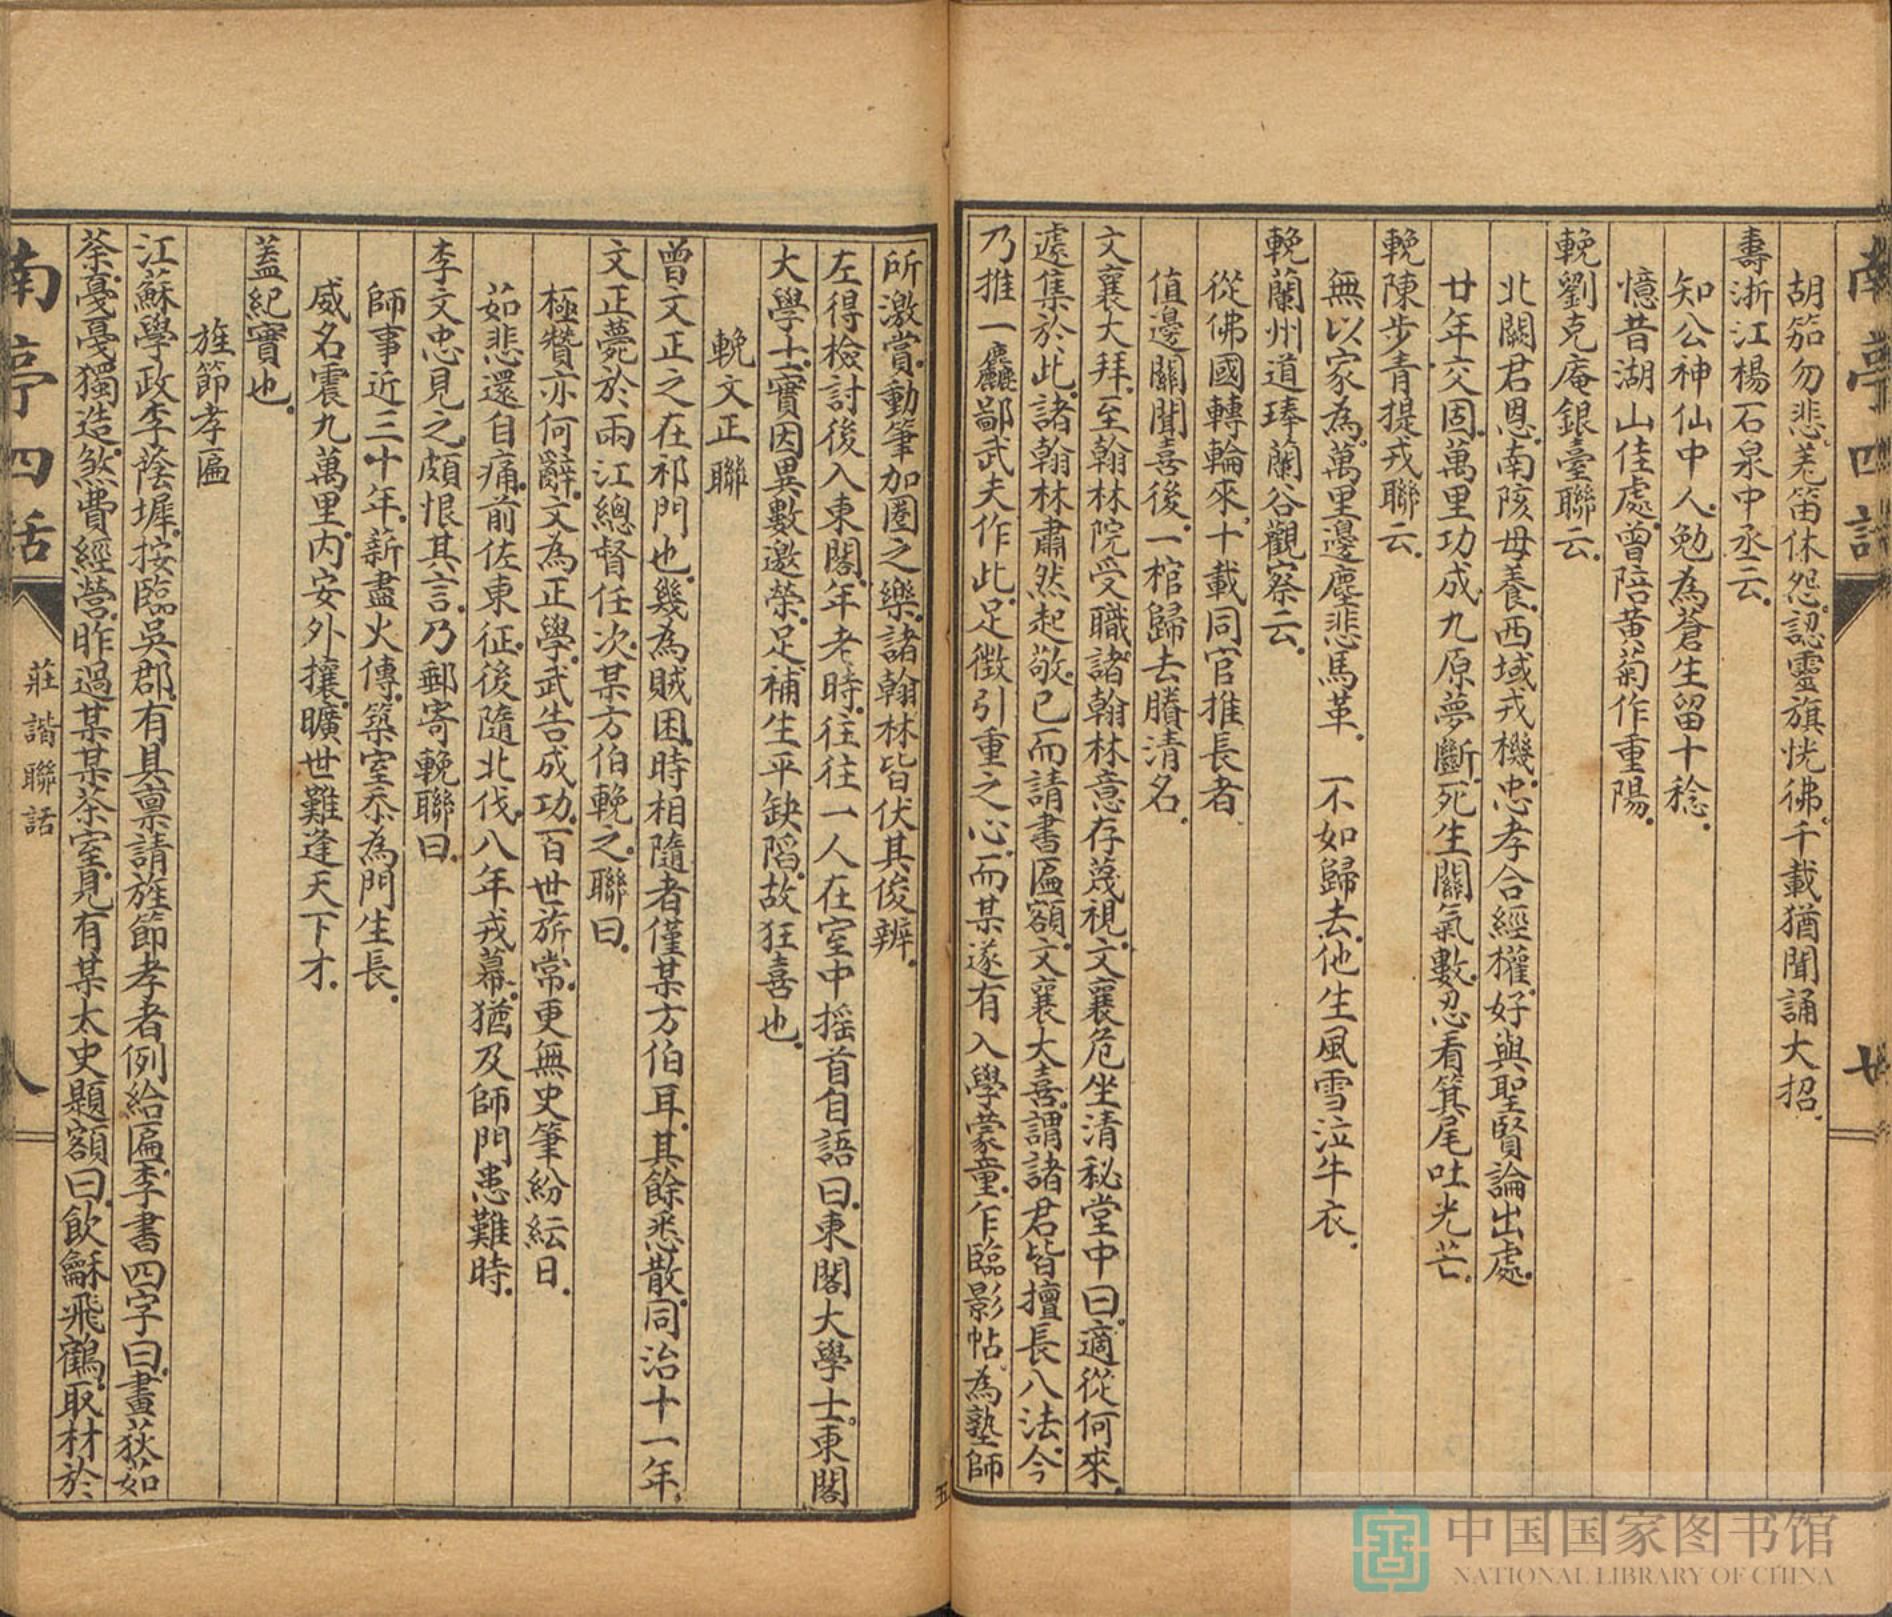 南亭四話
胡笳勿悲。羌笛休怨。認靈旗恍彿。千載猶聞誦大招。
壽浙江楊石泉中丞云。
知公神仙中人。勉為蒼生留十稔。
憶昔湖山佳處。曾陪黃菊作重陽。
輓劉克庵銀臺聯云。
北闕君恩。南陔母養。西域戎機。忠孝合經權。好與聖賢論出處。
廿年交固。萬里功成。九原夢斷。死生關氣數。忍看箕尾吐光芒。
輓陳步青提戎聯云。
無以家為。萬里邊塵悲馬革。 一不如歸去。他生風雪泣牛衣。
輓蘭州道琫蘭谷觀察云。
從佛國轉輪來。十載同官推長者。
值邊關聞喜後。一棺歸去賸清名。
文襄大拜。至翰林院受職。諸翰林意存蔑視。文襄危坐清秘堂中曰。適從何來。
遽集於此。諸翰林肅然起敬。已而請書匾額。文襄大喜。謂諸君皆擅長八法。今
乃推一麤鄙武夫作此。足徵引重之心。而某遂有入學蒙童。乍臨影帖。為塾師
所激賞。動筆加圈之樂。諸翰林皆伏其俊辨。
左得檢討後入東閣。年老時。往往一人在室中搖首自語曰。東閣大學士。東閣
大學士。實因異數邀榮。足補生平缺陷。故狂喜也。
輓文正聯
曾文正之在祁門也。幾為賊困。時相隨者僅某方伯耳。其餘悉散。同治十一年。
文正薨於兩江總督任次。某方伯輓之。聯曰。
極贊亦何辭。文為正學。武告成功。百世旂常。更無史筆紛紜日。
茹悲還自痛。前佐東征。後隨北伐。八年戎幕。猶及師門患難時。
李文忠見之。頗恨其言。乃郵寄輓聯曰。
師事近三十年。薪盡火傳。築室忝為門生長。
威名震九萬里。內安外攘。曠世難逢天下才。
蓋紀實也。
旌節孝匾
江蘇學政李蔭墀。按臨吳郡。有具稟請旌節孝者。例給匾。李書四字曰。畫荻茹
荼。戞戞獨造。煞費經營。昨過某某茶室。見有某太史題額曰。飲龢飛鶴。取材於
南亭四話
莊諧聯話
八
五
中国国家图书馆
NATIONAL LIBRARY OF CHINA